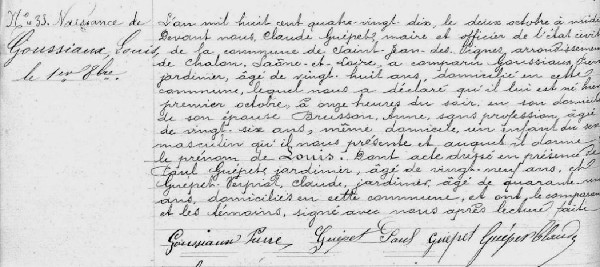 N° 33. Naissance de
Goussiaux, Louis,
le 1er 8bre.
L'an mil huit cent quatre-vingt dix, le deux octobre à midi
devant nous, Claude Guépet, maire et officier de l'état civil
de la commune de Saint-Jean-des-Vignes, arrondissement
de Chalon, Saône-et-Loire, a comparu Goussiaux,
jardinier, âgé de vingt-huit ans, domicilié en cette
commune, lequel nous a déclaré qu'il lui est né hier
premier octobre, à onze heures du soir, en son domicile
de son épouse Buisson, Anne, sans profession, âgée
de vingt-six ans, même domicile, un enfant du sexe
masculin qu'il nous présente et auquel il donne
le prénom de Louis. Dont acte dressé en présence de
Paul Guépet, jardinier, âgé de vingt-neuf ans, et
Guépet, Claude, jardinier, âgé de quarante-un
ans, domiciliés en cette commune, et ont, le comparant
et les témoins, signé avec nous après lecture faite
Goussiaux Pierre Guépet Paul Guépet Guépet Claude